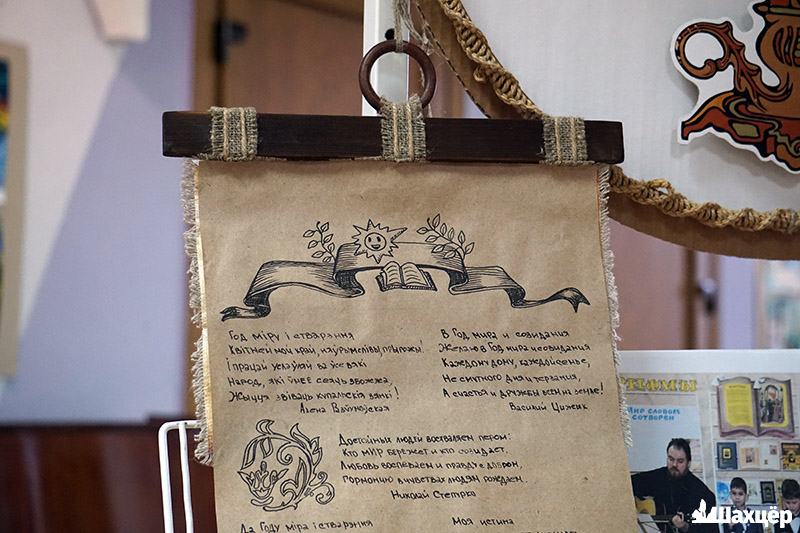 Год міру і стварэння
Квітней мой край, няўрымслівы, прыгожы!
І працай услаўляй ва ўсе вякі
Народ, які ўмее сеяць збожжа,
Жыцця звіваць купальскія вянкі!
Алена
В Год мира и созидания
Желаю в Год мира и созидания
Каждому дому, каждой семье,
Не смутного дня и терзания,
А счастья и дружбы всем на земле!
Василий
Достойных людей воспеваем пером:
Кто МИР бережет и кто созидает.
Любовь воспеваем и правду с добром,
Гармонию в чувствах людям рождаем.
Николай Стетрка
Да Году міра і стварэння
Моя истина
РИФМЫ
МИР СЛОВОМ
СОТВОРЕН
Шахцёр